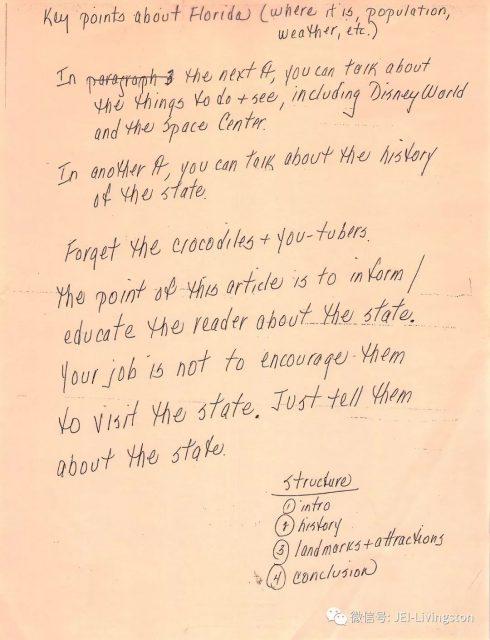 Key points about Florida (where it is, population,
weather, etc.)
In paragraph 3 the next ¶, you can talk about
the things to do + see, including Disney World
and the Space Center.
In another ¶, you can talk about the history
of the state.
Forget the crocodiles + you-tubers.
The point of this article is to inform/
educate the reader about the state.
Your job is not to encourage them
to visit the state. Just tell them
about the state.
structure
① intro
② history
③ landmarks + attractions
④ conclusion
微信号: JEI-Livingston